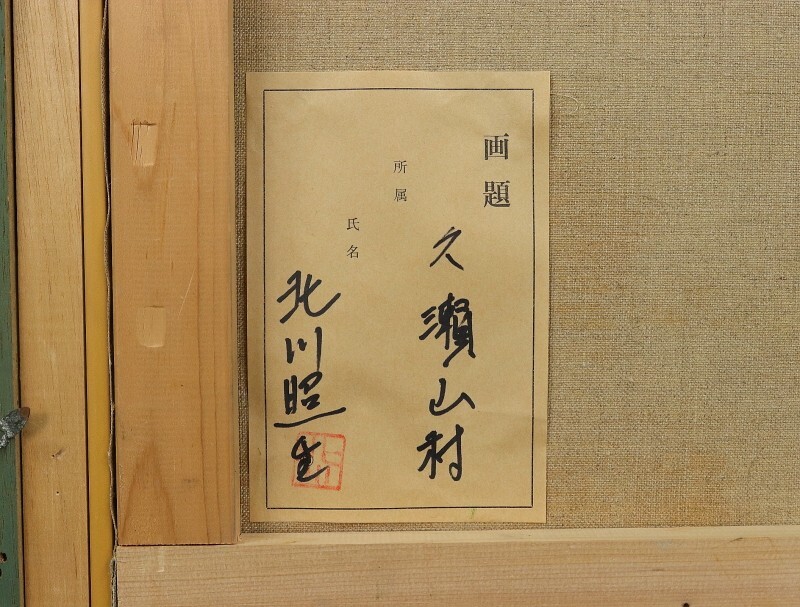 画題
久瀬山村
所属
氏名
北川照生